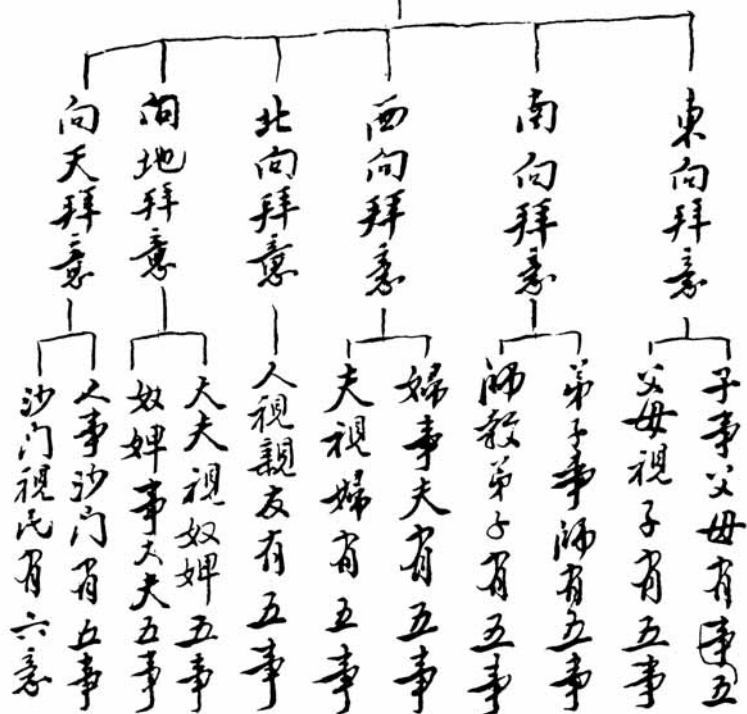 東向拜意
子事父母有事五
父母視子有五事
南向拜意
弟子事師有五事
師教弟子有五事
西向拜意
婦事夫有五事
夫視婦有五事
北向拜意
人視親友有五事
向地拜意
大夫視奴婢五事
奴婢事大夫五事
向天拜意
人事沙门有五事
沙门視民有六意